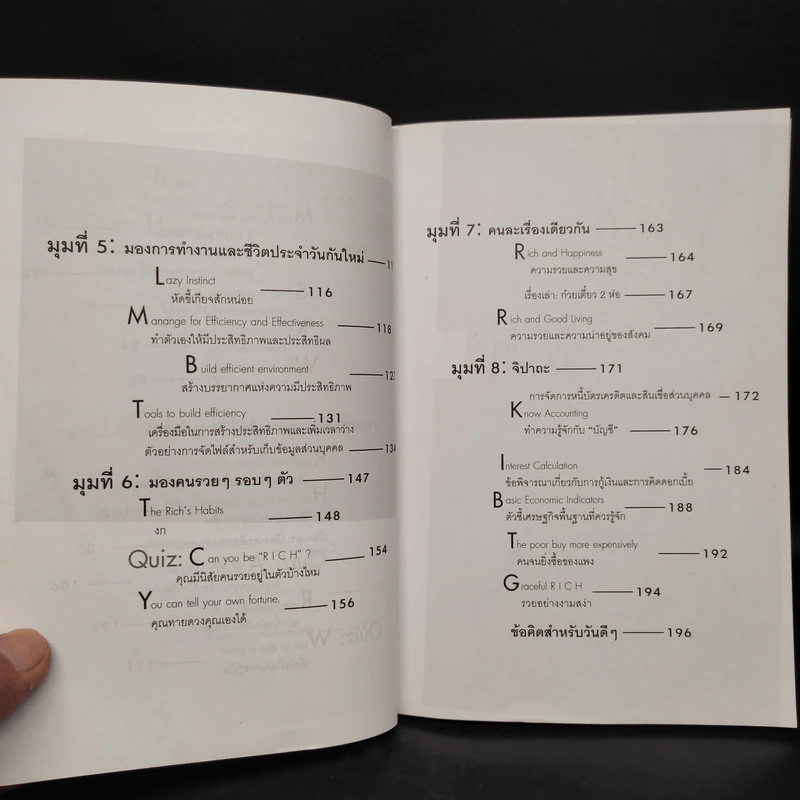 มุมที่ 5: มองการทำงานและชีวิตประจำวันกันใหม่
Lazy Instinct 116
หัดขี้เกียจสักหน่อย
Manange for Efficiency and Effectiveness 118
ทำตัวเองให้มีประสิทธิภาพและประสิทธิผล
Build efficient environment
สร้างบรรยากาศแห่งความมีประสิทธิภาพ
Tools to build efficiency 131
เครื่องมือในการสร้างประสิทธิภาพและเพิ่มเวลาว่าง
ตัวอย่างการจัดไฟล์สำหรับเก็บข้อมูลส่วนบุคคล 134
มุมที่ 6: มองคนรวยๆ รอบๆ ตัว 147
The Rich's Habits 148
งก
Quiz: Can you be "RICH" ? 154
คุณมีนิสัยคนรวยอยู่ในตัวบ้างไหม
You can tell your own fortune. 156
คุณทายดวงคุณเองได้
มุมที่ 7: คนละเรื่องเดียวกัน 163
Rich and Happiness 164
ความรวยและความสุข
เรื่องเล่า: ก๋วยเตี๋ยว 2 ห่อ 167
Rich and Good Living 169
ความรวยและความน่าอยู่ของสังคม
มุมที่ 8: จิปาถะ 171
การจัดการหนี้บัตรเครดิตและสินเชื่อส่วนบุคคล 172
Know Accounting
ทำความรู้จักกับ "บัญชี" 176
Interest Calculation 184
ข้อพิจารณาเกี่ยวกับการกู้เงินและการคิดดอกเบี้ย
Basic Economic Indicators 188
ตัวชี้เศรษฐกิจพื้นฐานที่ควรรู้จัก
The poor buy more expensively 192
คนจนยิ่งซื้อของแพง
Graceful RICH 194
รวยอย่างงามสง่า
ข้อคิดสำหรับวันดีๆ 196